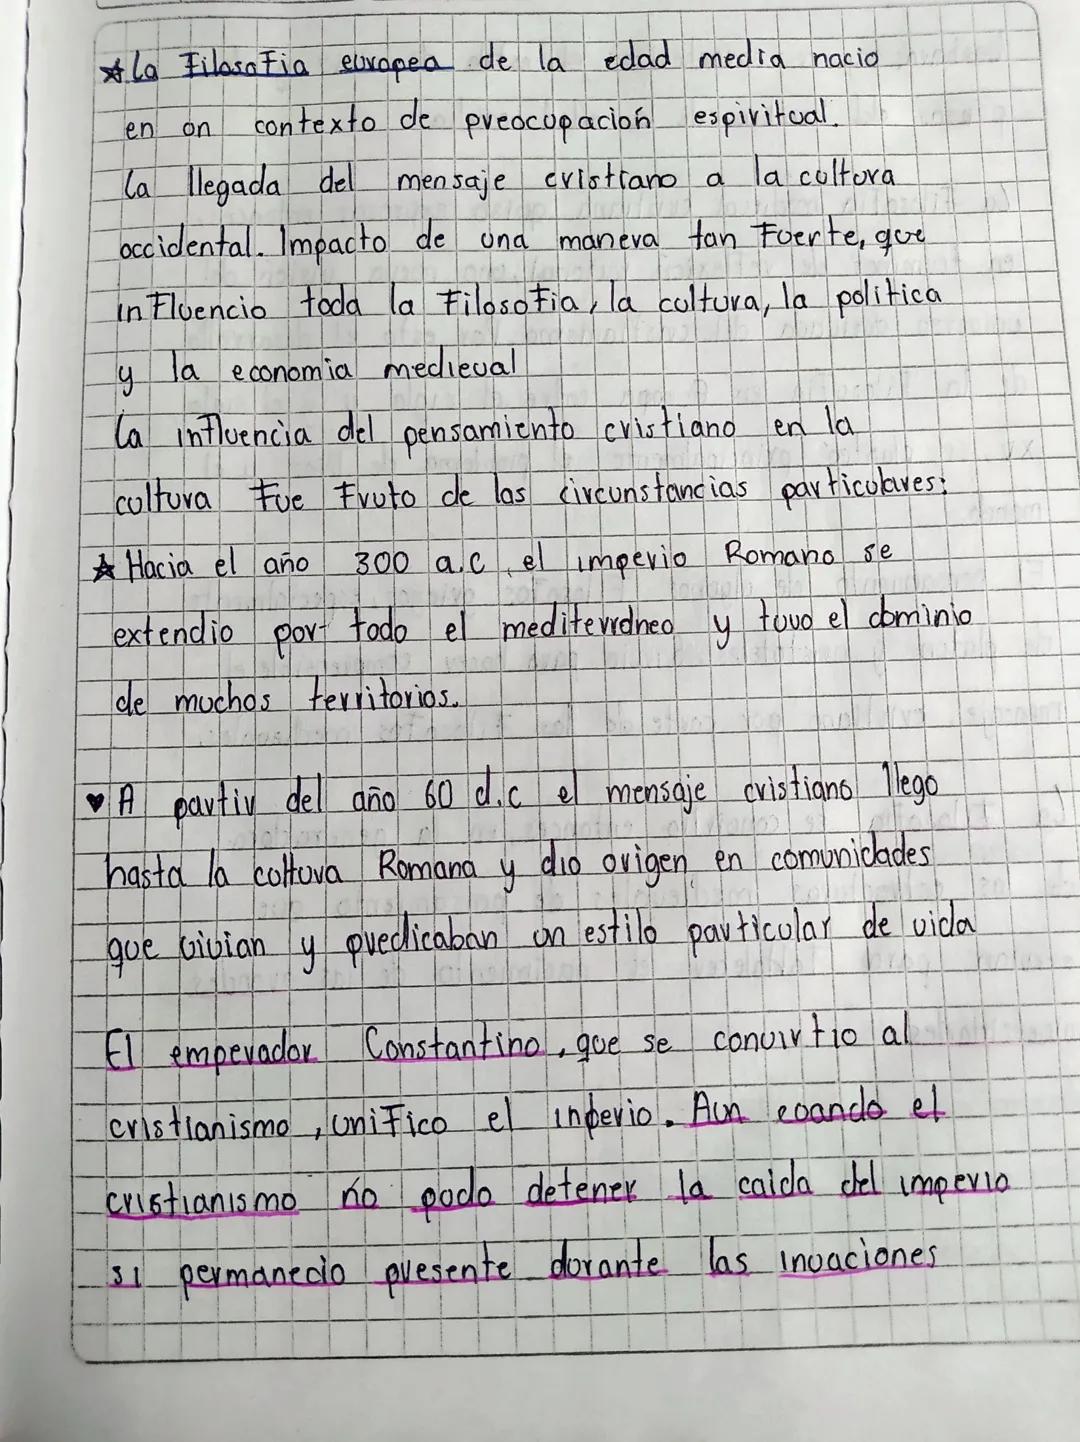 ★ La Filosofia europea de la edad media nacio
en on contexto de preocupacion espiritual.
La llegada del mensaje cristiano a la coltora
occidental. Impacto de una manera tan Foerte, que
inFluencio toda la Filosofia, la coltora, la politica
y la economia medieval
La influencia del pensamiento cristiano en la
coltora Fue Fruto de las circunstancias particolares:
★ Hacia el año 300 a.c, el imperio Romano se
extendio por todo el mediterraneo y tovo el dominio
de mochos territorios.
♥ A partir del año 60 d.c el mensaje cristiano llego
hasta la coltora Romana y dio origen en comunidades
que vivian y predicaban un estilo particular de vida
El emperador Constantino, que se convirtio al
cristianismo, uniFico el inperio. Aun coando el
cristianismo no podo detener la caida del imperio
si permanecio presente dorante las invaciones